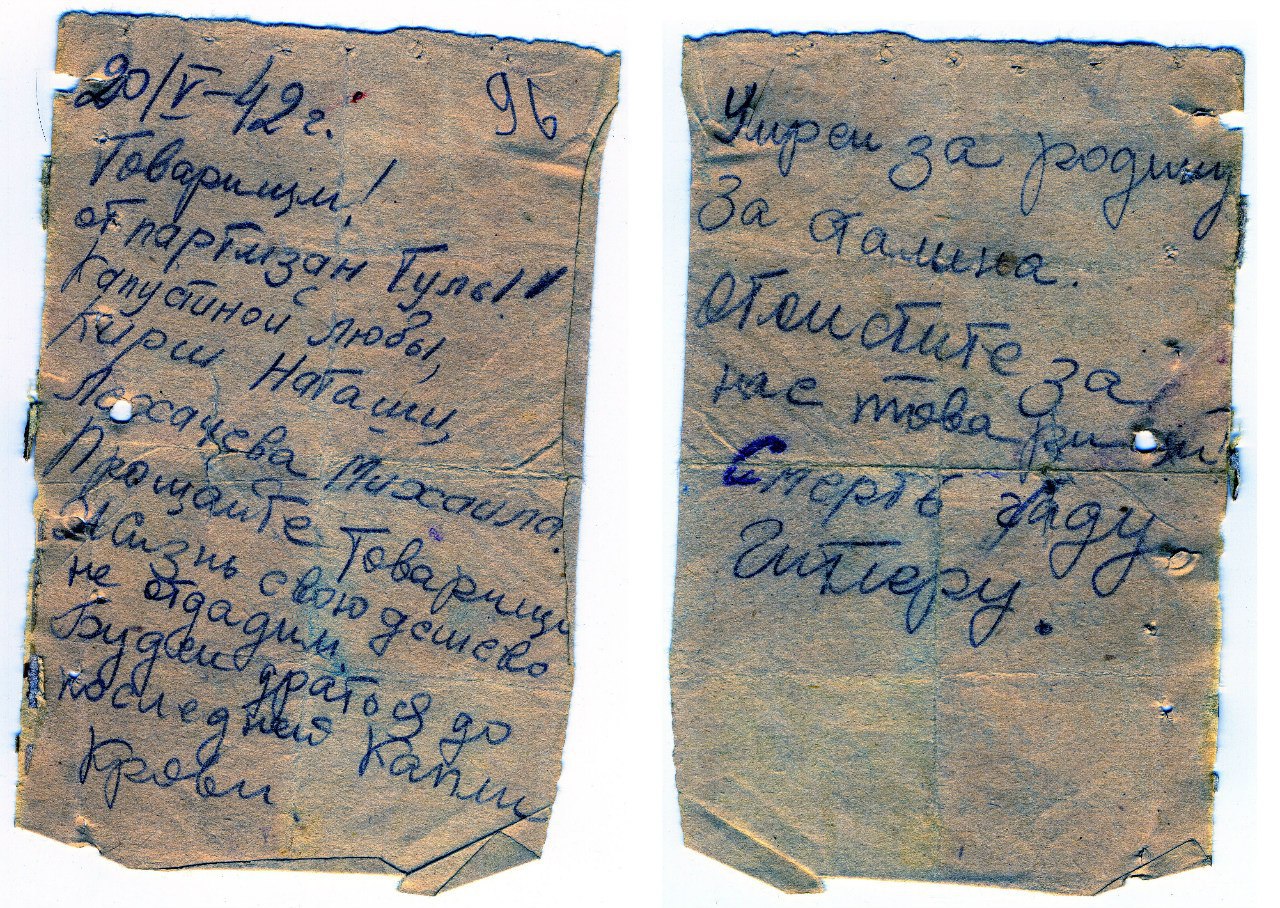 20/V-42 г.
96
Товарищи!
от партизан Тулы!
Капустиной Любы,
Кирш Наташи,
Лахачева Михаила.
Прощайте Товарищи
Жизнь свою дешево
не отдадим.
Будем драться до
последней Капли
Крови
Умрем за родину
За Сталина.
отомстите за
нас товарищи
Смерть гаду
Гитлеру.